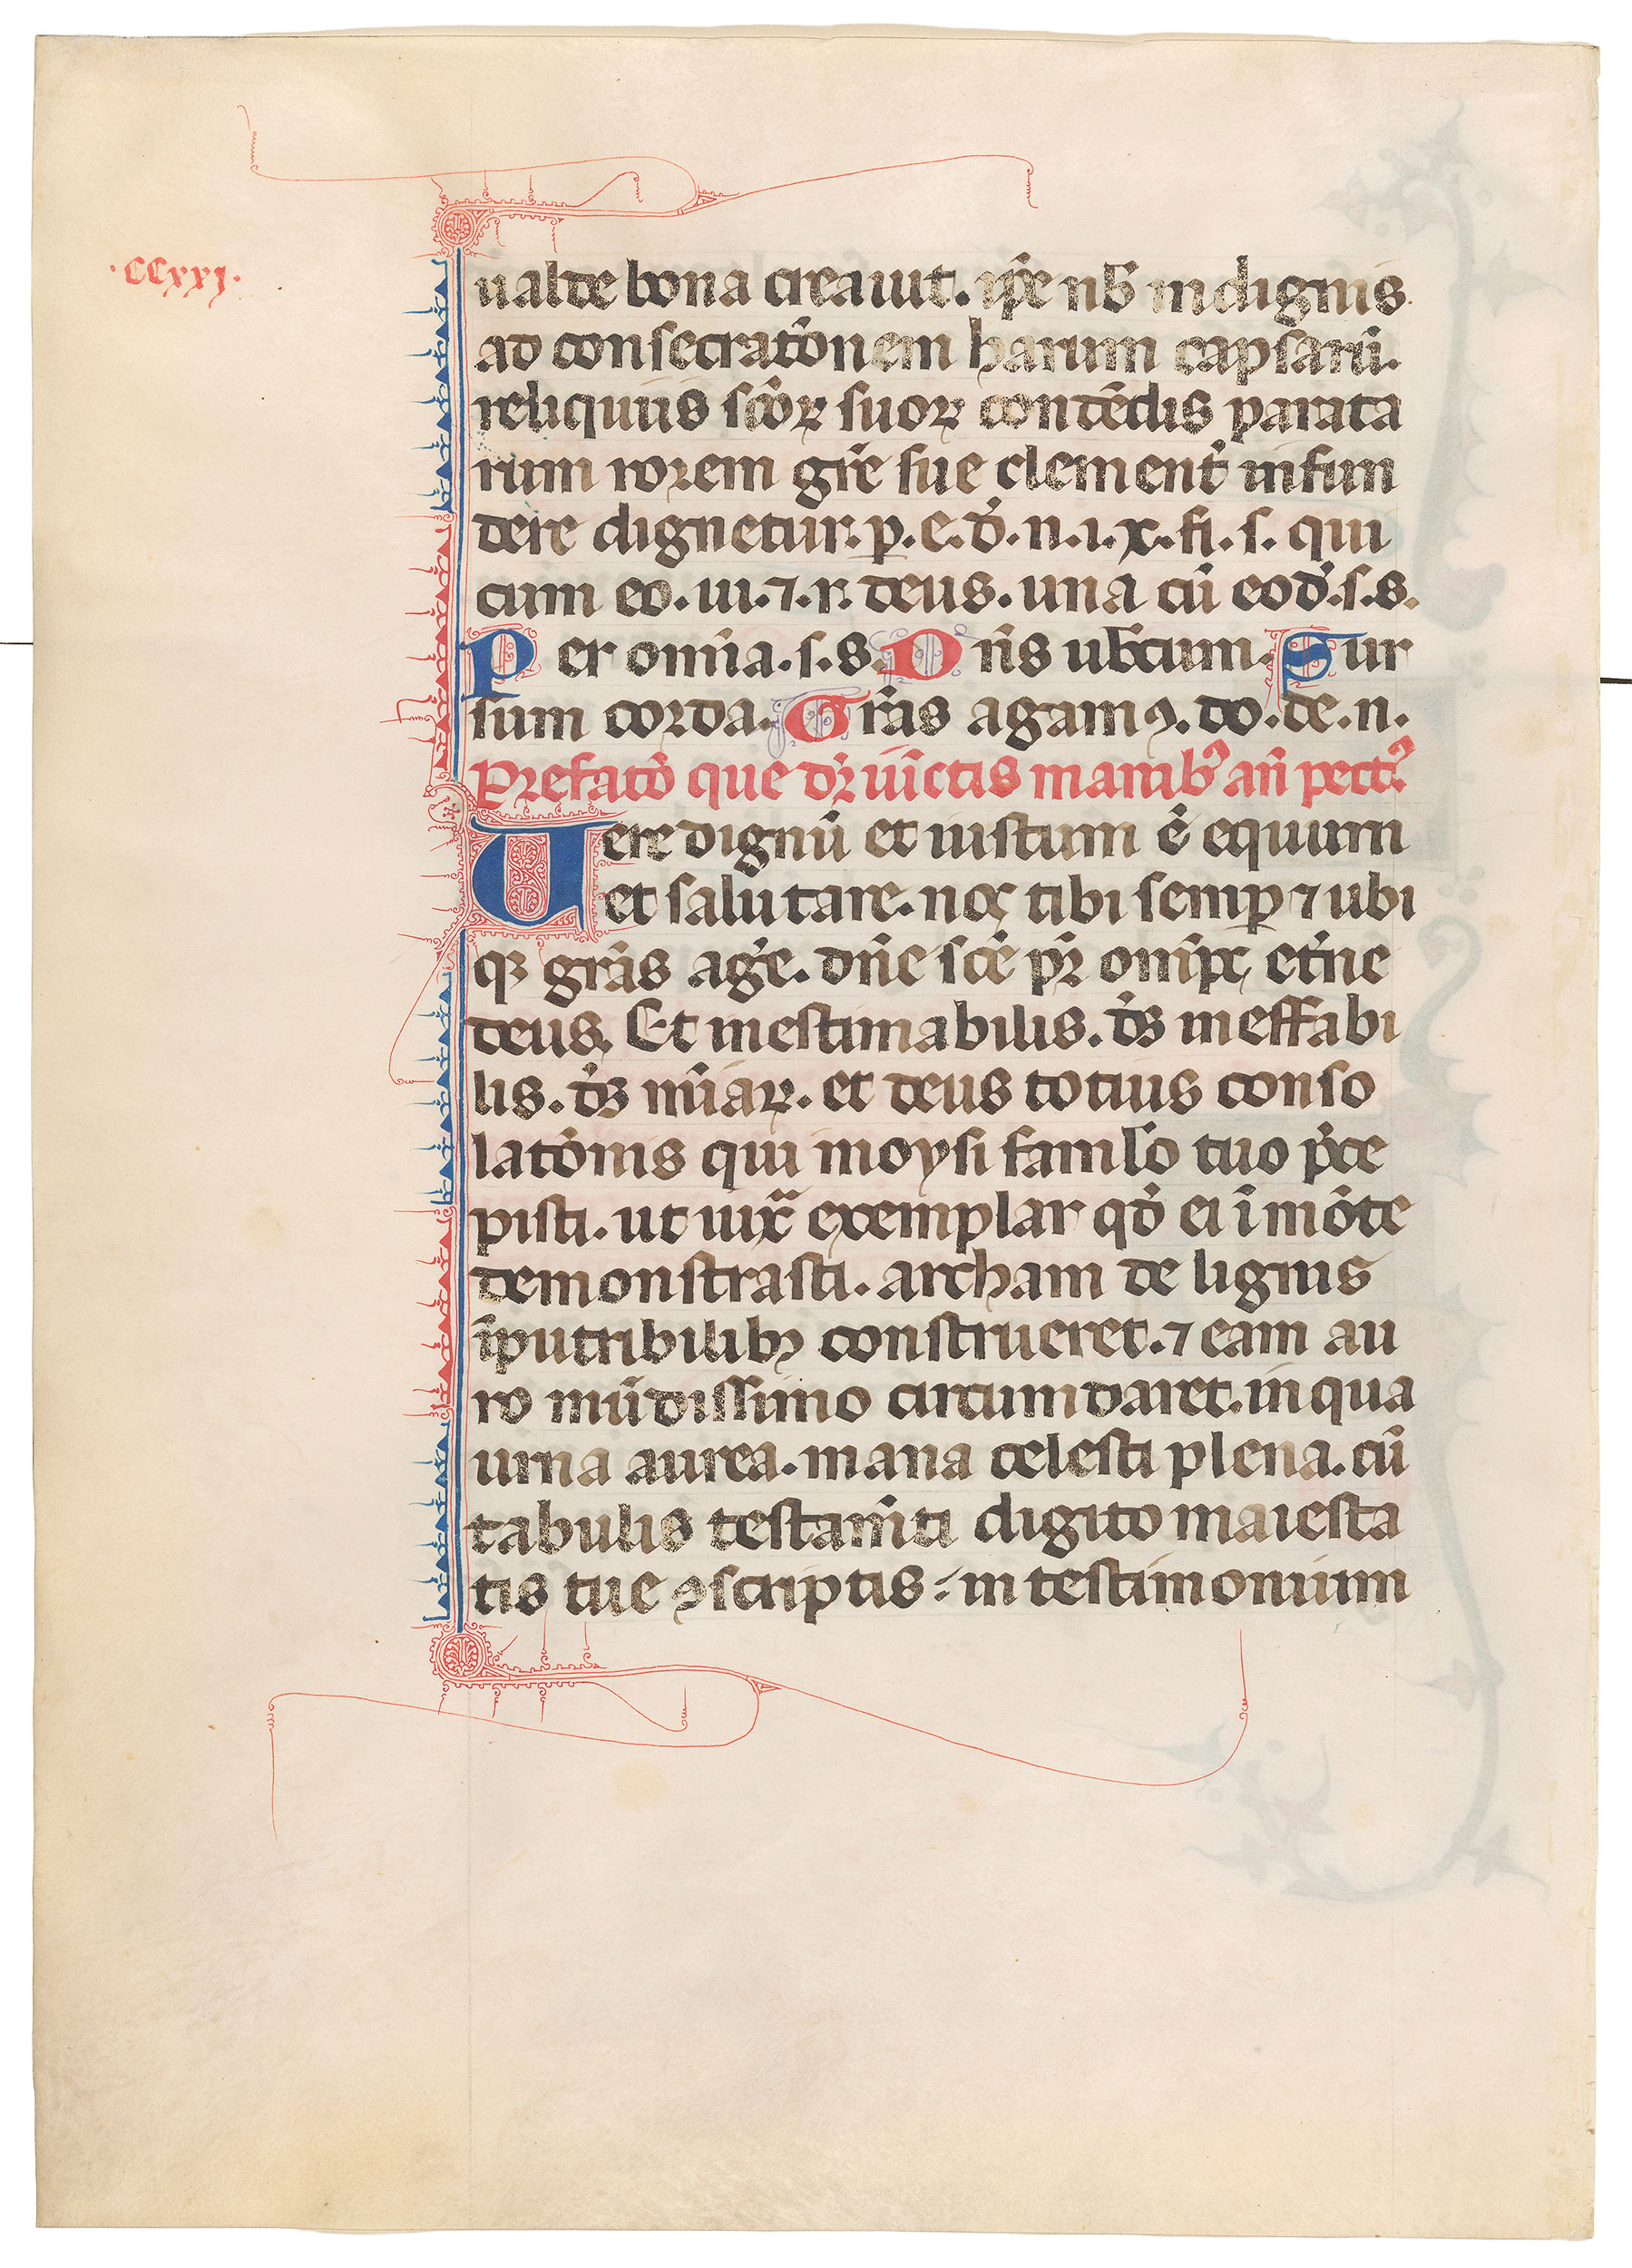 ·CCxxj·
ualde bona creauit. ip̄e nb̄ indignis
ad consecrat̄onem harum capsarū.
reliquiis sc̄oꝝ suoꝝ contēdis parata
rum rorem gr̄e sue clement̓ infun
dere dignetur. p. e. d̓. n. i. x. fi. s. qui
cum eo. ui. ⁊. r. deus. una cū eod̓. s. s.
Per om̄ia. s. s. Dn̄s ub̄cum. Sur
sum corda. Gr̄as agamꝰ. do. de. n.
Prefat̄o que dr̄ uīctis manibꝰ an̄ pectꝰ
Uere dignū et iustum ē equum
et salutare. nos tibi semꝑ ⁊ ubi
qꝫ gr̄as ag̓e. dn̄e sc̄e pr̄ om̄ips et̓ne
deus. Et inestimabilis. d̓s ineffabi
lis. d̓s mīaꝝ. et deus totius conso
lat̄onis qui moysi famlo̅ tuo p̓ce
pisti. ut iuxᷓ exemplar qd̓ ei ī mōte
demonstrasti. archam de lignis
īputribilibꝫ construeret. ⁊ eam au
ro mūdissimo circumdaret. in qua
urna aurea. mana celesti plena. cū
tabulis testam̄ti digito maiesta
tis tue ꝯscriptis. in testimonium